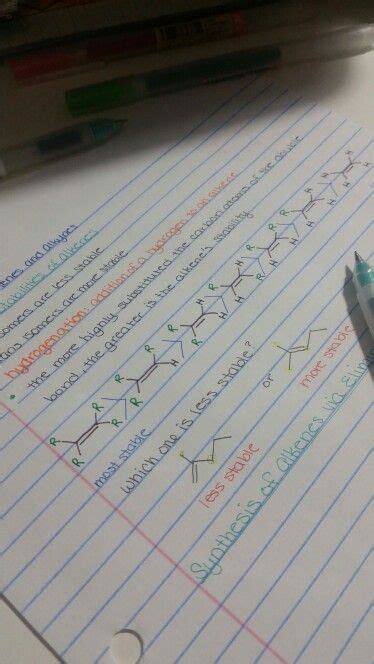 enes and alkynes
stabilities of alkenes
somers are less stable
ans isomers are more stable
hydrogenation: addition of a hydrogen to an alkene
• the more highly substituted the carbon atoms of the double
bond, the greater is the alkene's stability
R R R R > R R R H > R H R H > R H H R > R R H H > R H H H > H H H H
most stable
which one is less stable?
or
less stable
more stable
Synthesis of alkenes via Elim